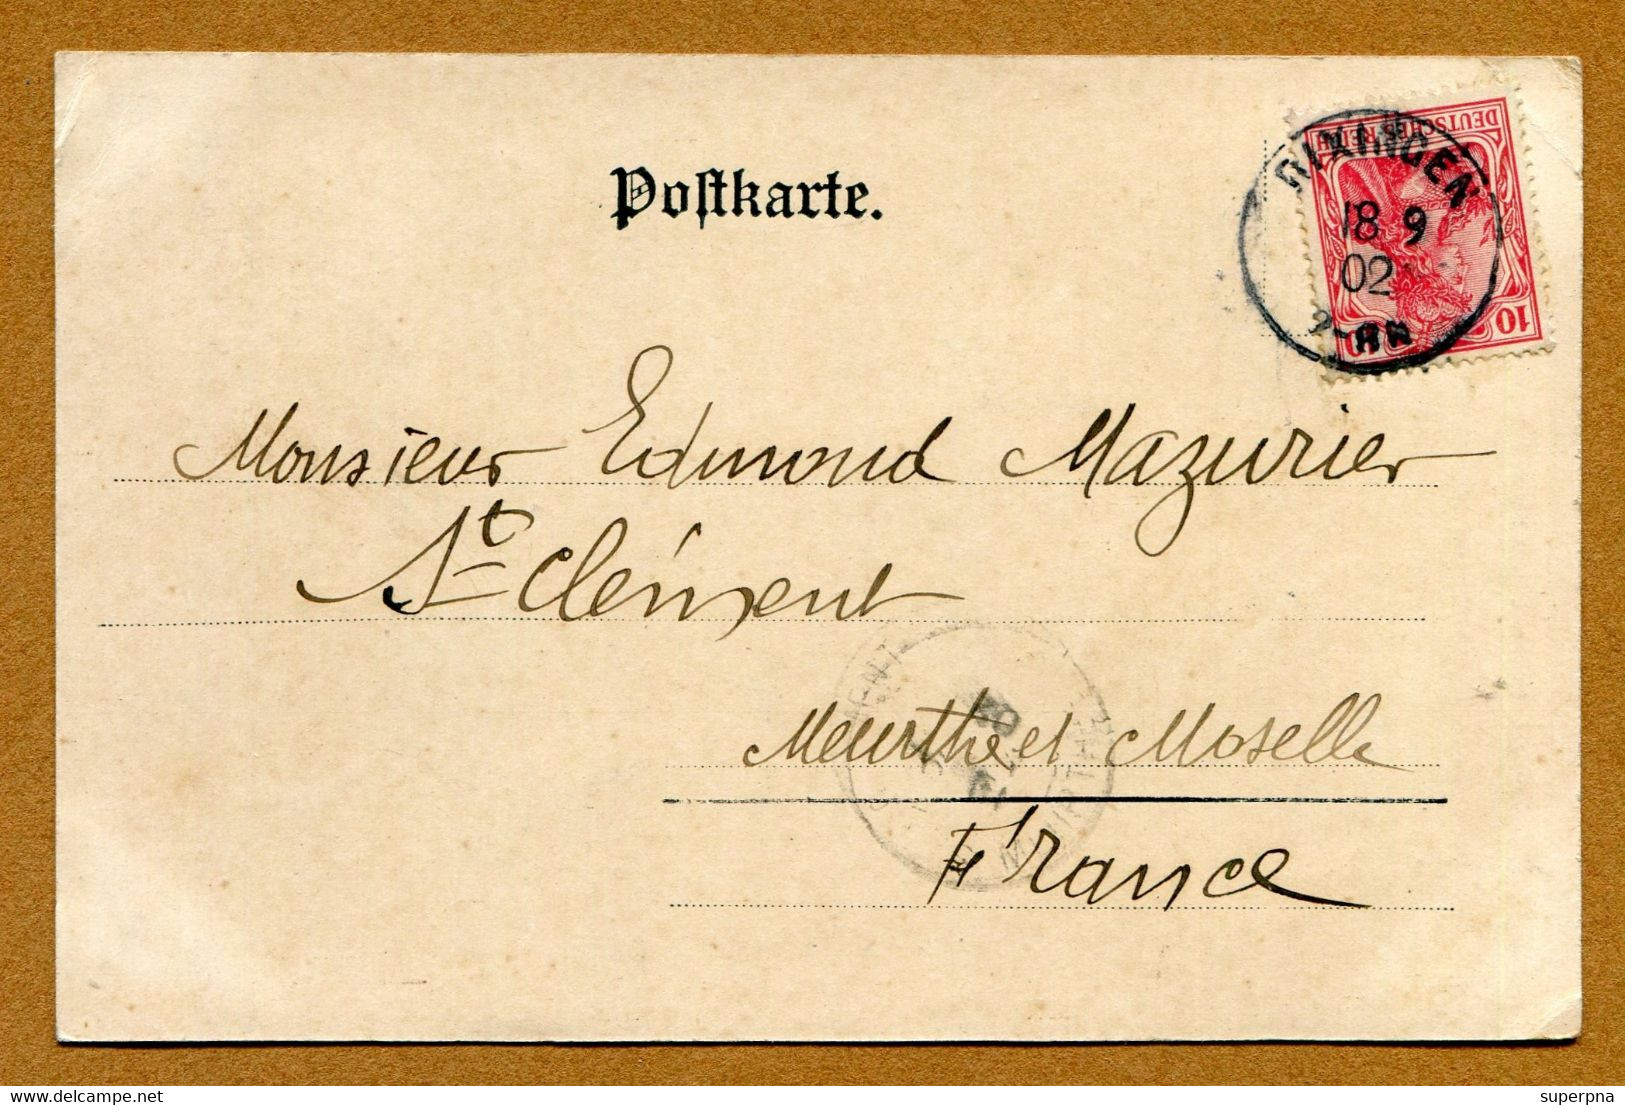 Postkarte.
DEUTSCHES REICH
10
RIXINGEN
18 9
02
Monsieur Edmond Mazurier
St Clément
Meurthe et Moselle
France
superpna